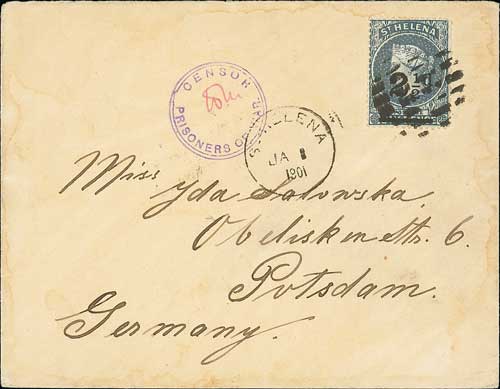 ST HELENA
CENSOR
PRISONERS OF WAR
ST. HELENA
JA 1
1901
Miss Ida Salowska,
Obelisken Str. 6.
Potsdam.
Germany.